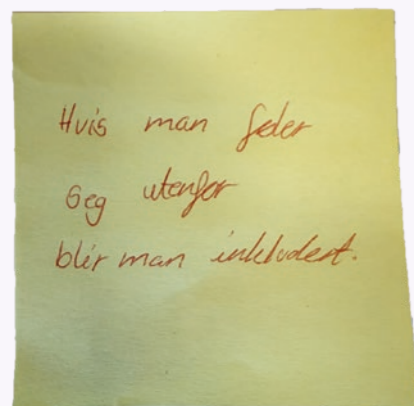 Hvis man føler
seg utenfor
blir man inkludert.